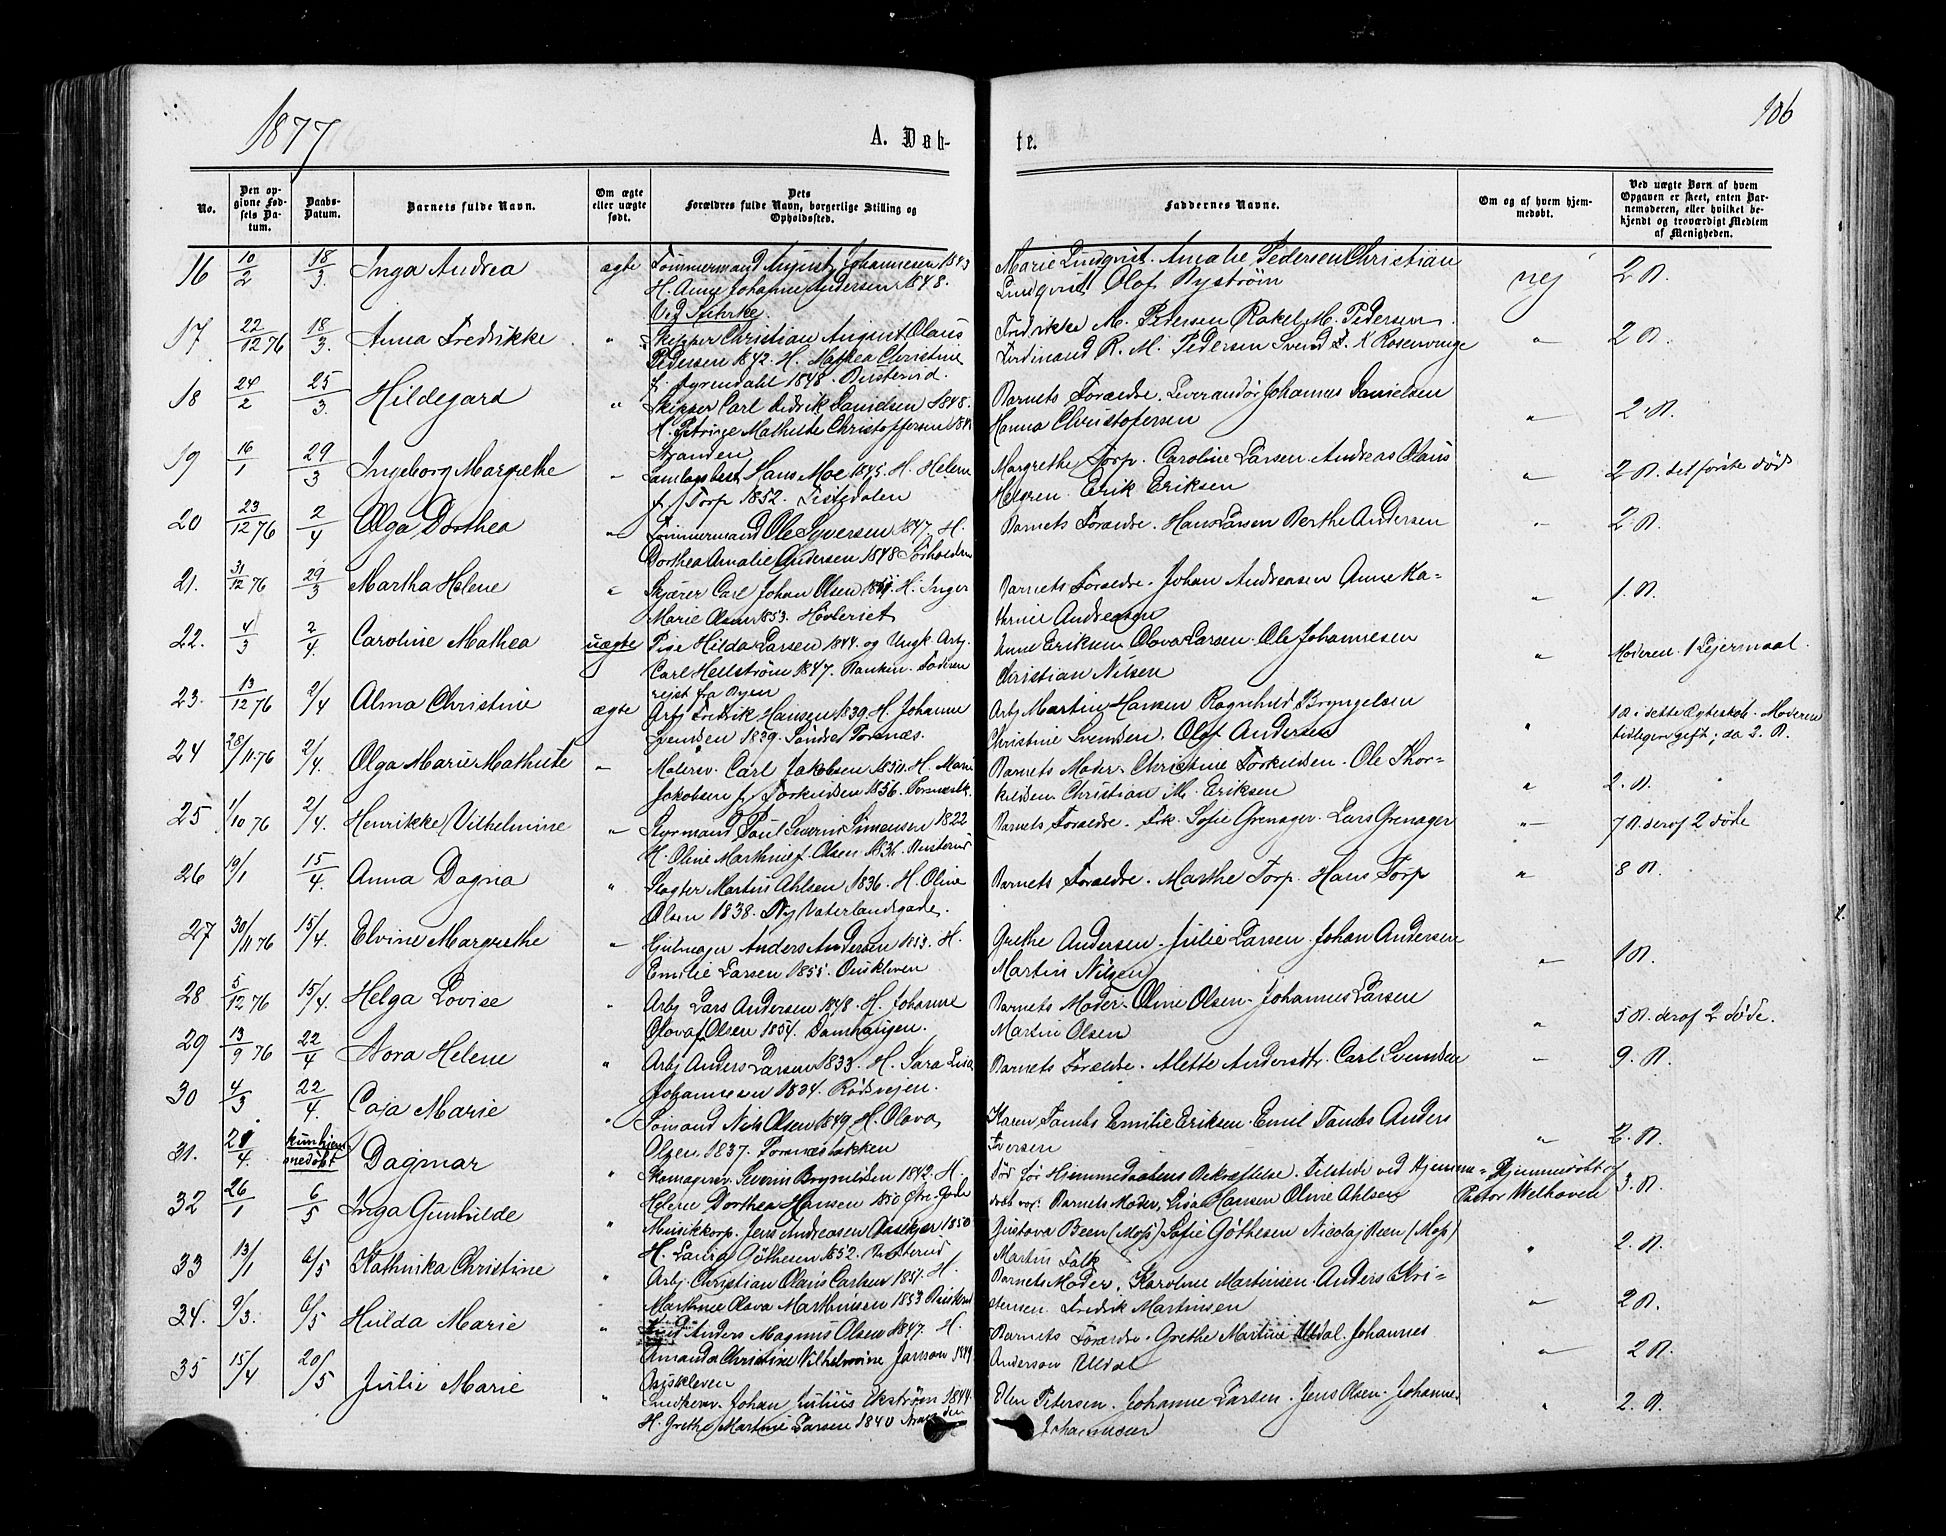 1877
A. Døb-
te.
106
No.
Den op-
givne Fød-
sels Da-
tum.
Daabs-
Datum.
Barnets fulde Navn.
Om ægte
eller uægte
født.
Dets
Forældres fulde Navn, borgerlige Stilling og
Opholdssted.
Faddernes Navne.
Om og af hvem hjem-
medøbt.
Ved uægte Børn af hvem
Opgaven er skeet, enten Bar-
nemoderen, eller hvilket be-
kjendt og troværdigt Medlem
af Menigheden.
16 10/2 18/3 Inga Andrea ægte Tømmermand August Johannesen 1843 Marie Lundqvist. Amalie Pedersen Christian nej 2 B.
H. Anne Johanne Andersen 1848. Lundqvist Olof Nyström
17 22/12 76 18/3 Anna Fredrikke " Skipper Christian August Olaus Fredrikke M. Pedersen Rakel M. Pedersen " 2 B.
Pedersen 1842. H. Mathea Christine Ferdinand R. M. Pedersen Svend F. K Rosenvinge
f. Gyrendahl 1848.
18 24/2 25/3 Hildegard " Skipper Carl Fredrik Danielsen 1848. Barnets Forældre. Leverandør Johannes Danielsen " 2 B.
H. Petrine Mathilde Christoffersen Hanna Christofersen
Stranden
19 16/1 29/3 Ingeborg Margrethe " Samlagsbest. Hans Moe 1845 H. Helene Margrethe Torp. Caroline Larsen Andreas Olaus " 2 B. det første død
f. Torp 1852. Tistedalen Erik Eriksen
20 23/12 76 2/4 Olga Dorthea " Tømmermand Ole Syversen 1847 H. Barnets Forældre. Hans Larsen Berthe Andersen " 2 B.
Dorthea Amalie Andersen 1848
21. 31/12 76 29/3 Martha Helene " Skjærer Carl Johan Olsen H. Inger Barnets Forældre. Johan Andreasen Anne Ka- " 1. B.
Marie Olsen 1853. Hovleriet thrine Andreasen
22. 4/3 2/4 Caroline Mathea uægte Pige Hilda Larsen 1844. og Ungk. Arb. Anne Eriksen Olava Larsen. Ole Johannesen " Moderen. 1 Lejermaal.
Carl Hellström 1847. Banken. Faderen Christian Nilsen
rejst fra Byen
23. 13/12 76 2/4 Alma Christine ægte Arb. Fredrik Hansen 1839. H. Johanne Arb. Martin Hansen Ragnehild Bryngelsen " 1 B i dette Ægteskab. Moderen
Svendsen 1839. Søndre Torsnæs. Christine Svendsen. Olof Andersen tidligere gift; da 2. B.
24 28/11.76 2/4. Olga Marie Mathilde " Malersv. Carl Jakobsen 1850. H. Marie Barnets Moder. Christine Torkildsen. Ole Thor- " 2. B.
Jakobsen f. Torkildsen 1856. kildsen Christian M. Eriksen
25 1/10 76 2/4. Henrikke Vilhelmine " Styrmand Paul Severin Simensen 1822 Barnets Forældre. Frk. Sofie Grenager. Lars Grenager " 7 B. deraf 2 døde
H. Oline Marthine f. Olsen 1836.
26 19/1 15/4. Anna Dagna " Slagter Martin Ahlsen 1836. H. Oline Barnets Forældre. Marthe Torp. Hans Torp " 8 B.
Olsen 1838. Ny Vaterlandsgade.
27 30/11 76 15/4. Elvine Margrethe " Gjulmager Anders Andersen 1853. H. Grethe Andersen. Julie Larsen. Johan Andersen " 1 B.
Emilie Larsen 1855. Oreskleven Martin Nilsen
28 5/12 76 15/4. Helga Lovise " Arb. Lars Andersen 1848. H. Johanne Barnets Moder. Oline Olsen. Johannes Larsen " 5 B. deraf 2 døde.
Olava Olsen 1854. Damhaugen. Martin Olsen
29 13/9 76 22/4 Nora Helene " Arb. Anders Larsen 1833. H. Sara Lisa Barnets Forældre. Alette Andersdtr. Carl Svendsen " 9. B.
Johannesen 1834. Rødsvejen.
30 4/3 22/4. Caja Marie " Sømand Nils Olsen 1849 H. Olava Karen Tambs Emilie Eriksen. Emil Tambs Anders " 2. B.
Olsen 1837. Torsnæsbakken Iversen
31. 21/4. kun hjem- medøbt Dagmar " Skomagersv. Severin Brynildsen 1842. H. Død før Hjemmedaabens Bekræftelse. Tilstede ved Hjemme- Hjemmedøbt af 3. B.
Helene Dorthea Hansen 1850 Øvre Gade daab var: Barnets Moder, Lisa Hansen Oline Ahlsen Pastor Welhaven
32 26/1 6/5 Inga Gunhilde " Musikkorp. Jens Andreasen Aaskjær 1850 Gustava Been (Moss) Sofie Gøthesen Nicolaj Been (Moss) " 2. B.
H. Laura Gøthesen 1852. Martin Falk
33 13/1 6/5 Kathinka Christine " Arb. Christian Olaus Carlsen 1854. H. Barnets Moder. Karoline Martinsen. Anders Kri- " 2 B.
Marthine Olava Marthinsen 1853 stensen. Fredrik Martinsen
34. 9/3. 6/5 Hilda Marie " Anders Magnus Olsen 1847. H. Barnets Forældre. Grethe Martine Uldal. Johannes " 2 B.
Amanda Christine Vilhelmine Janson 1849 Anderson Uldal
35 15/4 20/5 Julie Marie " Johan Julius Ekström 1844 Elen Petersen. Johanne Larsen. Jens Olsen. Johannes " 2. B.
H. Grethe Martine Larsen 1840 Johannesen